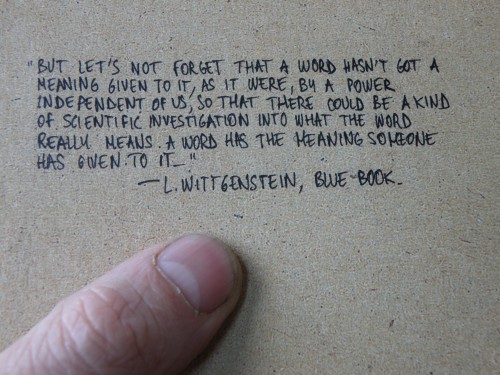 "BUT LET'S NOT FORGET THAT A WORD HASN'T GOT A
MEANING GIVEN TO IT, AS IT WERE, BY A POWER
INDEPENDENT OF US, SO THAT THERE COULD BE A KIND
OF SCIENTIFIC INVESTIGATION INTO WHAT THE WORD
REALLY MEANS. A WORD HAS THE MEANING SOMEONE
HAS GIVEN TO IT_"
—L. WITTGENSTEIN, BLUE-BOOK_